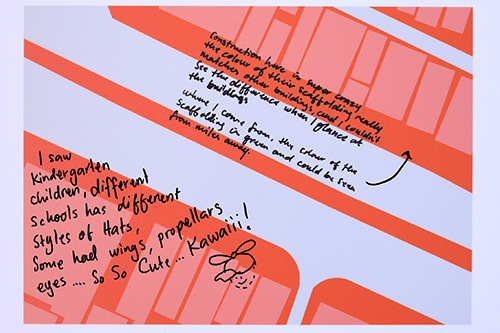 Construction here is super crazy
the colour of their scaffolding really
matches other buildings, and I couldn't
see the difference when I glance at
the buildings
where I come from, the colour of the
scaffolding is green and could be seen
from miles away.
I saw
Kindergarten
children, different
schools has different
styles of Hats,
Some had wings, propellars
eyes .... So So Cute ... Kawaiii!